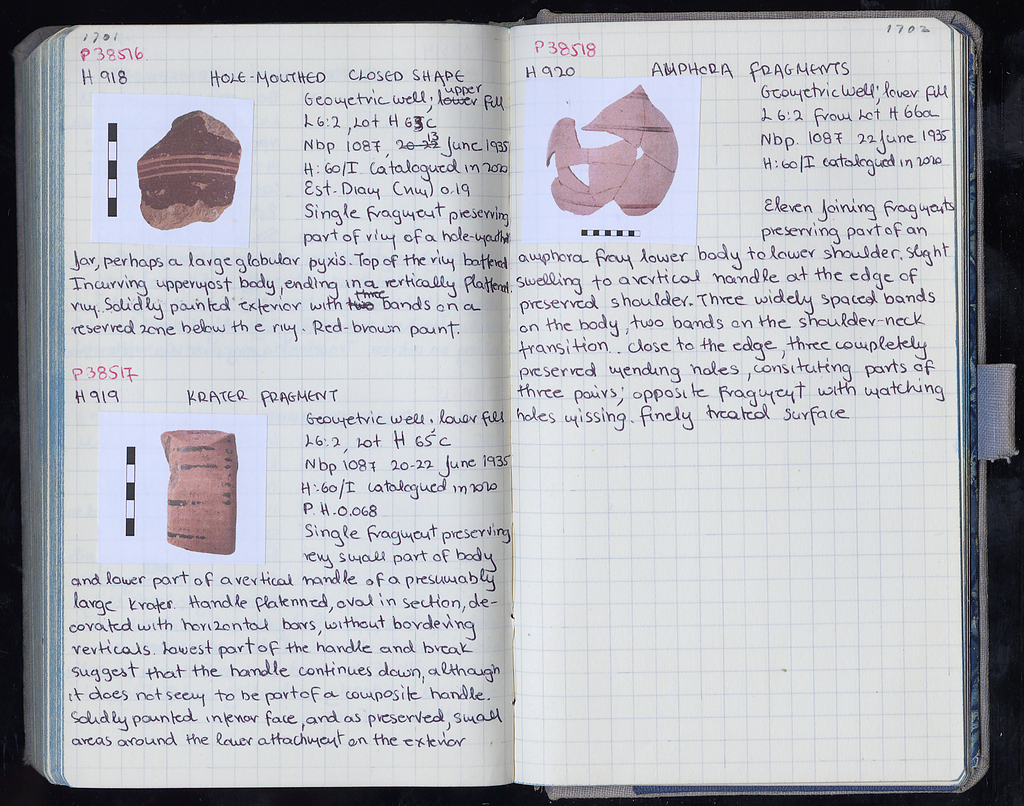 1701
P 38516
H 918 HOLE-MOUTHED CLOSED SHAPE
Geometric well; lower upper fill
L 6:2, Lot H 63 C
Nbp. 1087, 20-22 13 June 1935
H: 60/I Catalogued in 2020
Est. Diam (rim) 0.19
Single fragment preserving
part of rim of a hole-mouthed
jar, perhaps a large globular pyxis. Top of the rim battered
Incurving uppermost body, ending in a vertically flattened
rim. Solidly painted exterior with two three bands on a
reserved zone below the rim. Red-brown paint.
P 38517
H 919 KRATER FRAGMENT
Geometric well, lower fill
L 6:2, Lot H 65 C
Nbp 1087 20-22 June 1935
H: 60/I Catalogued in 2020
P.H. 0.068
Single fragment preserving
very small part of body
and lower part of a vertical handle of a presumably
large krater. Handle flatenned, oval in section, de-
corated with horizontal bars, without bordering
verticals. Lowest part of the handle and break
suggest that the handle continues down, although
it does not seem to be part of a composite handle.
Solidly painted interior face, and as preserved, small
areas around the lower attachment on the exterior
1702
P 38518
H 920 AMPHORA FRAGMENTS
Geometric well; lower fill
L 6:2 from Lot H 66a
Nbp. 1087 22 June 1935
H: 60/I catalogued in 2020
Eleven joining fragments
preserving part of an
amphora from lower body to lower shoulder. Slight
swelling to a vertical handle at the edge of
preserved shoulder. Three widely spaced bands
on the body, two bands on the shoulder-neck
transition. Close to the edge, three completely
preserved mending holes, consituting parts of
three pairs; opposite fragment with matching
holes missing. Finely treated surface